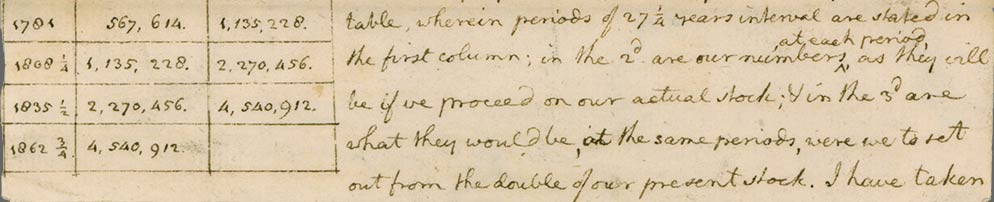 1781 567,614. 1,135,228.
1808 ¼ 1,135,228. 2,270,456.
1835 ½ 2,270,456. 4,540,912.
1862 ¾ 4,540,912.
table, wherein periods of 27 ¼ years interval are stated in
the first column; in the 2d. are our numbers, at each period, as they will
be if we proceed on our actual stock; & in the 3d are
what they would be, at the same periods, were we to set
out from the double of our present stock. I have taken